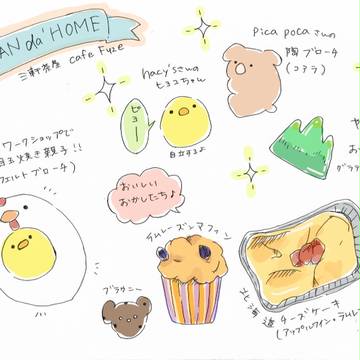 AN da' HOME!
三軒茶屋 cafe Fuze
pica pocaさんの
陶ブローチ
(コアラ)
nacy'sさんの
ヒヨコちゃん
ピヨー
自立するよ
ワークショップで
目玉焼き親子!!
フェルトブローチ)
おいしい
おかしたち♪
ラムレーズンマフィン
ブラウニー
北海道チーズケーキ
(アップルワイン・ラムレ